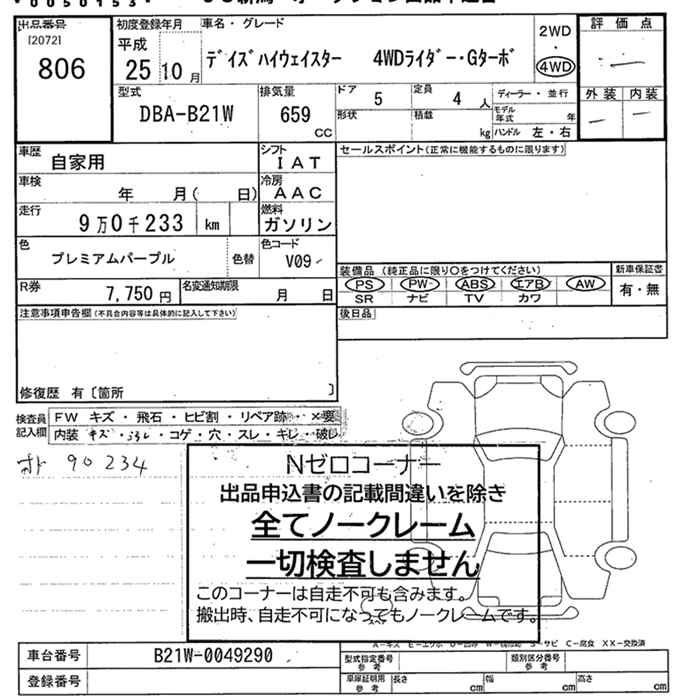 *0050153*
出品番号
[2072]
806
初度登録年月
平成
25 10 月
車名・グレード
デイズハイウェイスター 4WDライダー・Gターボ
2WD
・
4WD
評価点
外装 内装
型式
DBA-B21W
排気量
659
CC
ドア
5
定員
4 人
ディーラー・並行
形状
積載
kg
モデル年式 年
ハンドル 左・右
車歴
自家用
シフト
IAT
セールスポイント(正常に機能するものに限ります)
車検
年 月( 日)
冷房
AAC
走行
9万0千233 km
燃料
ガソリン
色
プレミアムパープル
色替
色コード
V09
装備品(純正品に限り○をつけてください)
PS PW ABS エアB AW
SR ナビ TV カワ
新車保証書
有・無
R券
7,750円
名変通知期限
月 日
注意事項申告欄(不具合内容等は具体的に記入して下さい)
後日品
修復歴 有〔箇所 〕
検査員記入欄
FW キズ・飛石・ヒビ割・リペア跡・×要
内装 キズ・コゲ・穴・スレ・キレ・破レ
90234
Nゼロコーナー
出品申込書の記載間違いを除き
全てノークレーム
一切検査しません
このコーナーは自走不可も含みます。
搬出時、自走不可になってもノークレームです。
A-キズ E-エクボ S-サビ C-腐食 XX-交換済
車台番号
B21W-0049290
登録番号
型式指定番号 参考
類別区分番号 参考
車庫証明用 参考
長さ cm
幅 cm
高さ cm